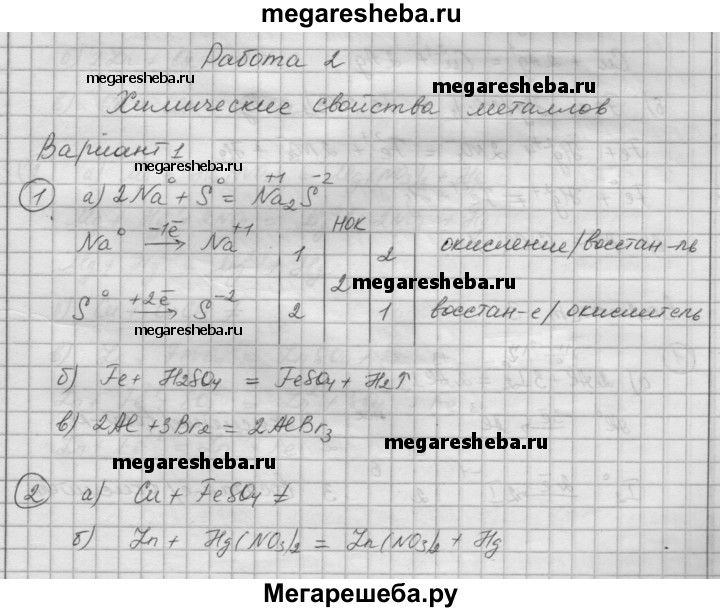 megaresheba.ru
Работа 2
megaresheba.ru
megaresheba.ru
Химические свойства металлов
Вариант 1
megaresheba.ru
1 а) 2Na⁰ + S⁰ = Na₂⁺¹S⁻²
НОК
Na⁰ –1ē → Na⁺¹ 1 2 окисление/восстан-ль
2
megaresheba.ru
S⁰ +2ē → S⁻² 2 1 восстан-е/окислитель
megaresheba.ru
б) Fe + H2SO4 = FeSO4 + H2↑
в) 2Al + 3Br2 = 2AlBr3
megaresheba.ru
megaresheba.ru
2 а) Cu + FeSO4 ≠
б) Zn + Hg(NO3)2 = Zn(NO3)2 + Hg
Мегарешеба.ру